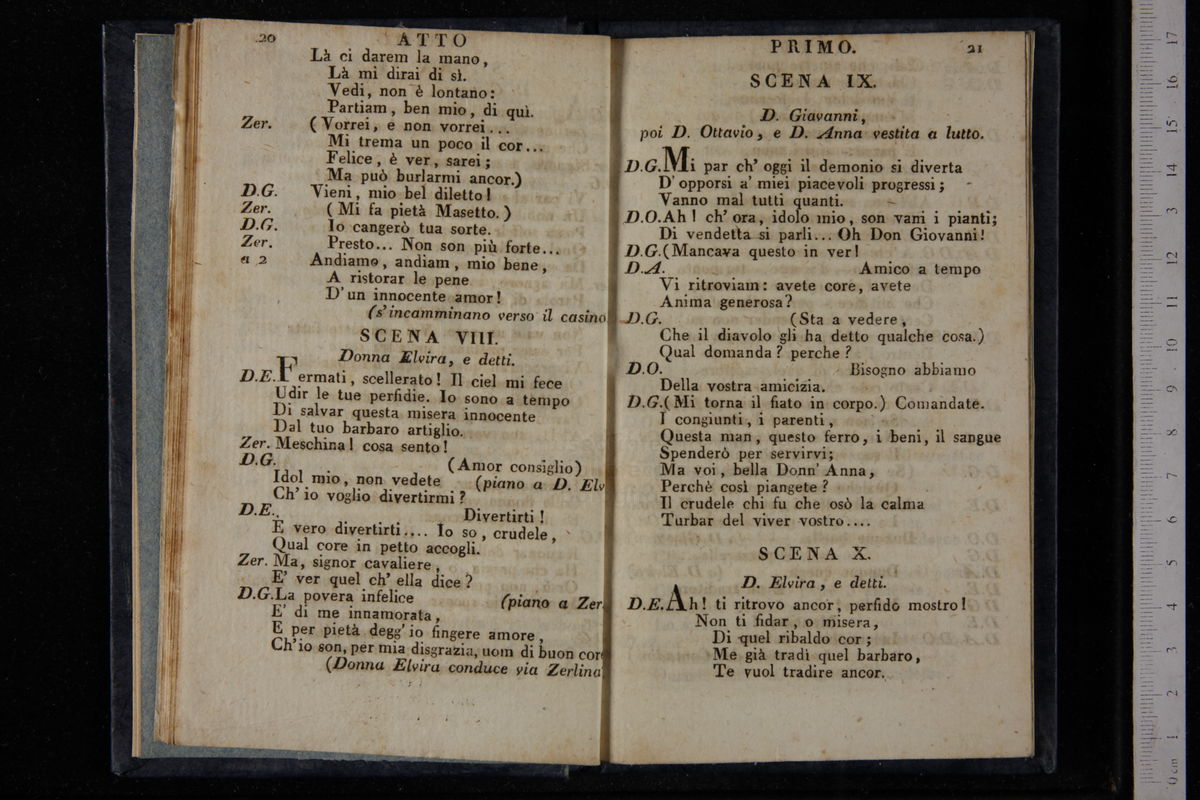 20 ATTO
Là ci darem la mano,
Là mi dirai di sì.
Vedi, non è lontano:
Partiam, ben mio, di quì.
Zer. (Vorrei, e non vorrei...
Mi trema un poco il cor...
Felice, è ver, sarei;
Ma può burlarmi ancor.)
D.G. Vieni, mio bel diletto!
Zer. (Mi fa pietà Masetto.)
D.G. Io cangerò tua sorte.
Zer. Presto... Non son più forte...
a 2 Andiamo, andiam, mio bene,
A ristorar le pene
D'un innocente amor!
(s'incamminano verso il casino
SCENA VIII.
Donna Elvira, e detti.
D.E. Fermati, scellerato! Il ciel mi fece
Udir le tue perfidie. Io sono a tempo
Di salvar questa misera innocente
Dal tuo barbaro artiglio.
Zer. Meschina! cosa sento!
D.G. (Amor consiglio)
Idol mio, non vedete (piano a D. Elv
Ch'io voglio divertirmi?
D.E. Divertirti!
E vero divertirti.... Io so, crudele,
Qual core in petto accogli.
Zer. Ma, signor cavaliere,
E' ver quel ch'ella dice?
D.G. La povera infelice (piano a Zer.
E' di me innamorata,
E per pietà degg'io fingere amore,
Ch'io son, per mia disgrazia, uom di buon cor
(Donna Elvira conduce via Zerlina
PRIMO. 21
SCENA IX.
D. Giavanni,
poi D. Ottavio, e D. Anna vestita a lutto.
D.G. Mi par ch'oggi il demonio si diverta
D'opporsi a' miei piacevoli progressi;
Vanno mal tutti quanti.
D.O. Ah! ch'ora, idolo mio, son vani i pianti;
Di vendetta si parli... Oh Don Giovanni!
D.G. (Mancava questo in ver!
D.A. Amico a tempo
Vi ritroviam: avete core, avete
Anima generosa?
D.G. (Sta a vedere,
Che il diavolo gli ha detto qualche cosa.)
Qual domanda? perche?
D.O. Bisogno abbiamo
Della vostra amicizia.
D.G. (Mi torna il fiato in corpo.) Comandate.
I congiunti, i parenti,
Questa man, questo ferro, i beni, il sangue
Spenderò per servirvi;
Ma voi, bella Donn'Anna,
Perchè così piangete?
Il crudele chi fu che osò la calma
Turbar del viver vostro....
SCENA X.
D. Elvira, e detti.
D.E. Ah! ti ritrovo ancor, perfido mostro!
Non ti fidar, o misera,
Di quel ribaldo cor;
Me già tradì quel barbaro,
Te vuol tradire ancor.
0 cm 1 2 3 4 5 6 7 8 9 10 11 12 13 14 15 16 17